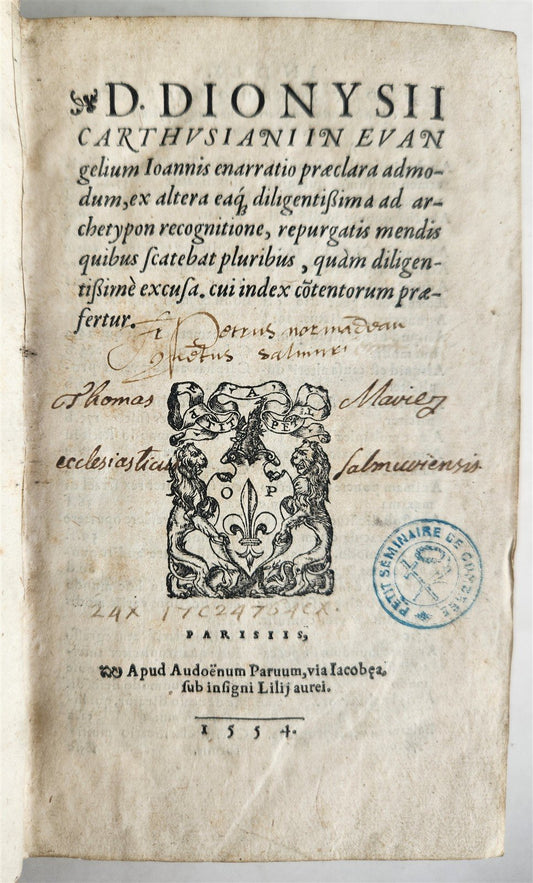 D. DIONYSII
CARTHVSIANI IN EVAN
gelium Ioannis enarratio præclara admo-
dum, ex altera eaq́; diligentißima ad ar-
chetypon recognitione, repurgatis mendis
quibus ſcatebat pluribus, quàm diligen-
tißimè excuſa. cui index cõtentorum præ-
fertur.
Petrus
salmuri
Thomas
ecclesiasticus salmuriensis
O P
PARISIIS,
Apud Audoënum Paruum, via Iacobęa,
ſub inſigni Lilij aurei.
1554.
PETIT SÉMINAIRE DE